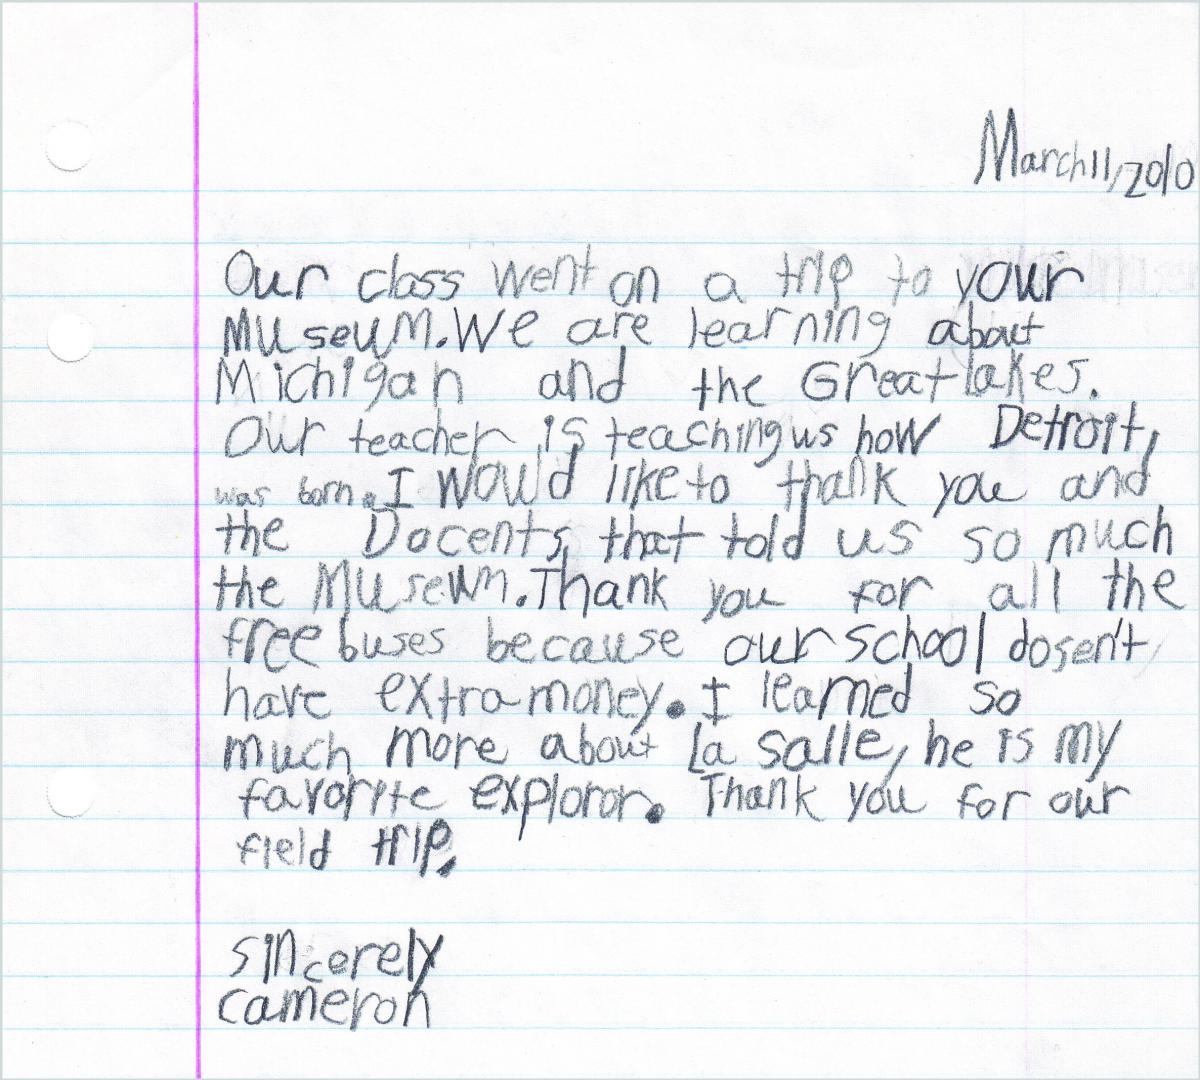 March 11, 2010
Our class went on a trip to your
Museum. We are learning about
Michigan and the Great lakes.
Our teacher is teaching us how Detroit,
was born. I would like to thank you and
the Docents, that told us so much
the Museum. Thank you for all the
free buses because our school dosen't
have extra money. I learned so
much more about La Salle, he is my
favorite exploror. Thank you for our
field trip.
sincerely
cameron